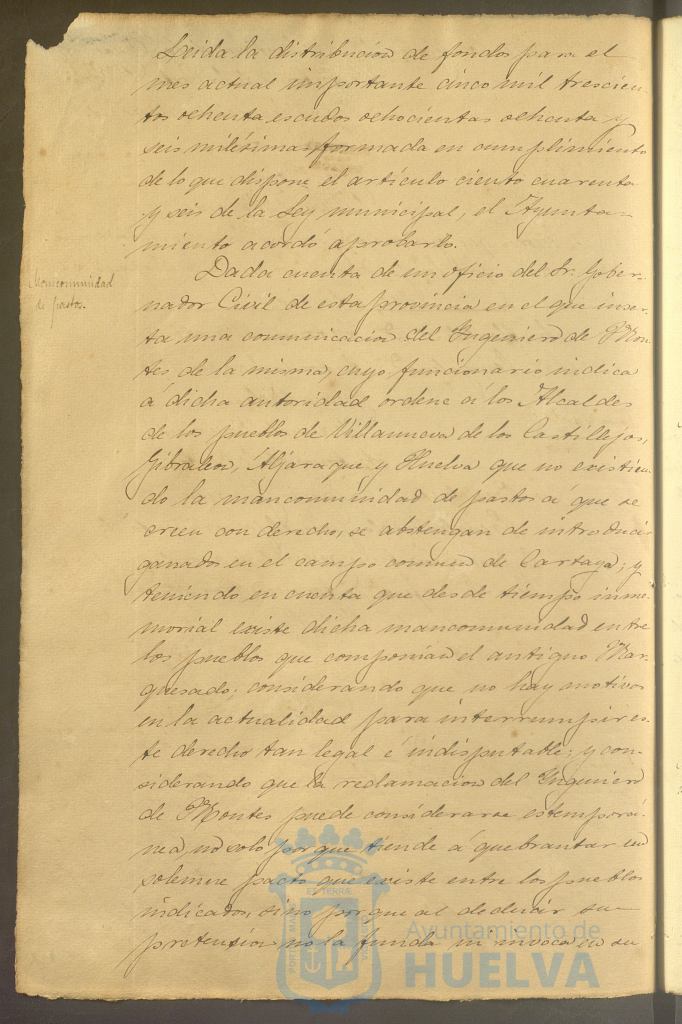 Leida la distribucion de fondos para el
mes actual importante cinco mil trescien-
tos ochenta escudos ochocientas ochenta y
seis milésimas formada en cumplimiento
de lo que dispone el artículo ciento cuarenta
y seis de la Ley municipal, el Ayunta-
miento acordó aprobarla.
Mancomunidad
de pastos.
Dada cuenta de un oficio del Sr. Gober-
nador Civil de esta provincia en el que inser-
ta una comunicacion del Ingeniero de Mon-
tes de la misma, cuyo funcionario indica
á dicha autoridad ordene á los Alcaldes
de los pueblos de Villanueva de los Castillejos,
Gibraleon, Aljaraque y Huelva que no existien-
do la mancomunidad de pastos á que se
creen con derecho, se abstengan de introducir
ganados en el campo comun de Cartaya; y
teniendo en cuenta que desde tiempo inme-
morial existe dicha mancomunidad entre
los pueblos que componian el antiguo Mar-
quesado; considerando que no hay motivos
en la actualidad para interrumpir es-
te derecho tan legal é indisputable; y con-
siderando que la reclamacion del Ingeniero
de Montes puede considerarse estemporá-
nea, no solo porque tiende á quebrantar un
solemne pacto que existe entre los pueblos
indicados, sino porque al deducir su
pretension no la funda ni invoca en su
Ayuntamiento de
HUELVA